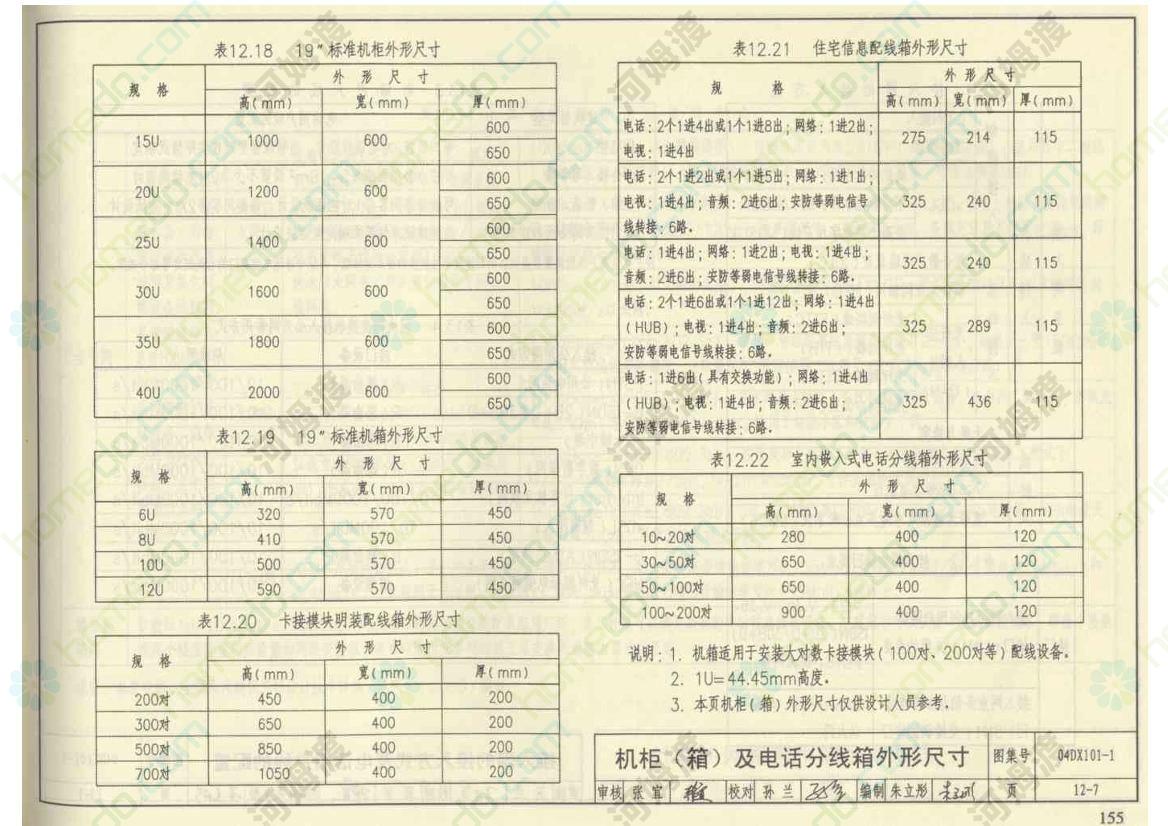 表12.18 19″标准机柜外形尺寸
规 格 外 形 尺 寸
高(mm) 宽(mm) 厚(mm)
15U 1000 600 600
650
20U 1200 600 600
650
25U 1400 600 600
650
30U 1600 600 600
650
35U 1800 600 600
650
40U 2000 600 600
650
表12.19 19″标准机箱外形尺寸
规 格 外 形 尺 寸
高(mm) 宽(mm) 厚(mm)
6U 320 570 450
8U 410 570 450
10U 500 570 450
12U 590 570 450
表12.20 卡接模块明装配线箱外形尺寸
规 格 外 形 尺 寸
高(mm) 宽(mm) 厚(mm)
200对 450 400 200
300对 650 400 200
500对 850 400 200
700对 1050 400 200
表12.21 住宅信息配线箱外形尺寸
规 格 外 形 尺 寸
高(mm) 宽(mm) 厚(mm)
电话：2个1进4出或1个1进8出；网络：1进2出；
电视：1进4出 275 214 115
电话：2个1进2出或1个1进5出；网络：1进1出；
电视：1进4出；音频：2进6出；安防等弱电信号 325 240 115
线转接：6路。
电话：1进4出；网络：1进2出；电视：1进4出；
音频：2进6出；安防等弱电信号线转接：6路。 325 240 115
电话：2个1进6出或1个1进12出；网络：1进4出
(HUB)；电视：1进4出；音频：2进6出； 325 289 115
安防等弱电信号线转接：6路。
电话：1进6出(具有交换功能)；网络：1进4出
(HUB)；电视：1进4出；音频：2进6出； 325 436 115
安防等弱电信号线转接：6路。
表12.22 室内嵌入式电话分线箱外形尺寸
规 格 外 形 尺 寸
高(mm) 宽(mm) 厚(mm)
10~20对 280 400 120
30~50对 650 400 120
50~100对 650 400 120
100~200对 900 400 120
说明：1. 机箱适用于安装大对数卡接模块(100对、200对等)配线设备。
2. 1U=44.45mm高度。
3. 本页机柜(箱)外形尺寸仅供设计人员参考。
机柜（箱）及电话分线箱外形尺寸 图集号 04DX101-1
审核 张宜 校对 孙兰 编制 朱立彤 页 12-7
155
河姆渡
homedo.com